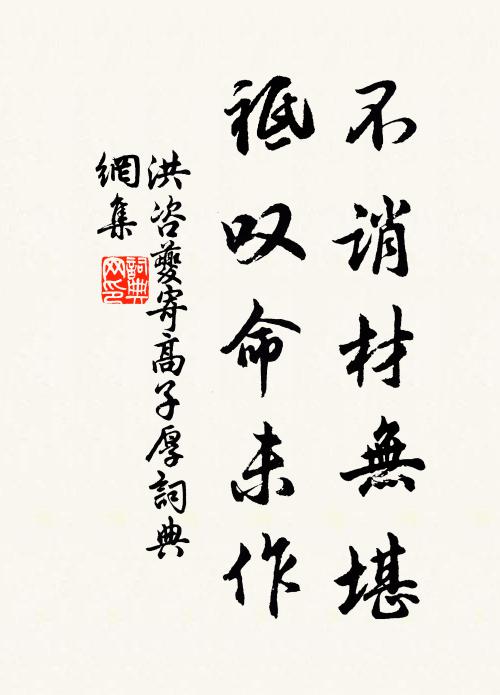 不誚材無堪
祗叹命未作
洪咨夔寄高子厚詞典
網集
詞典網印